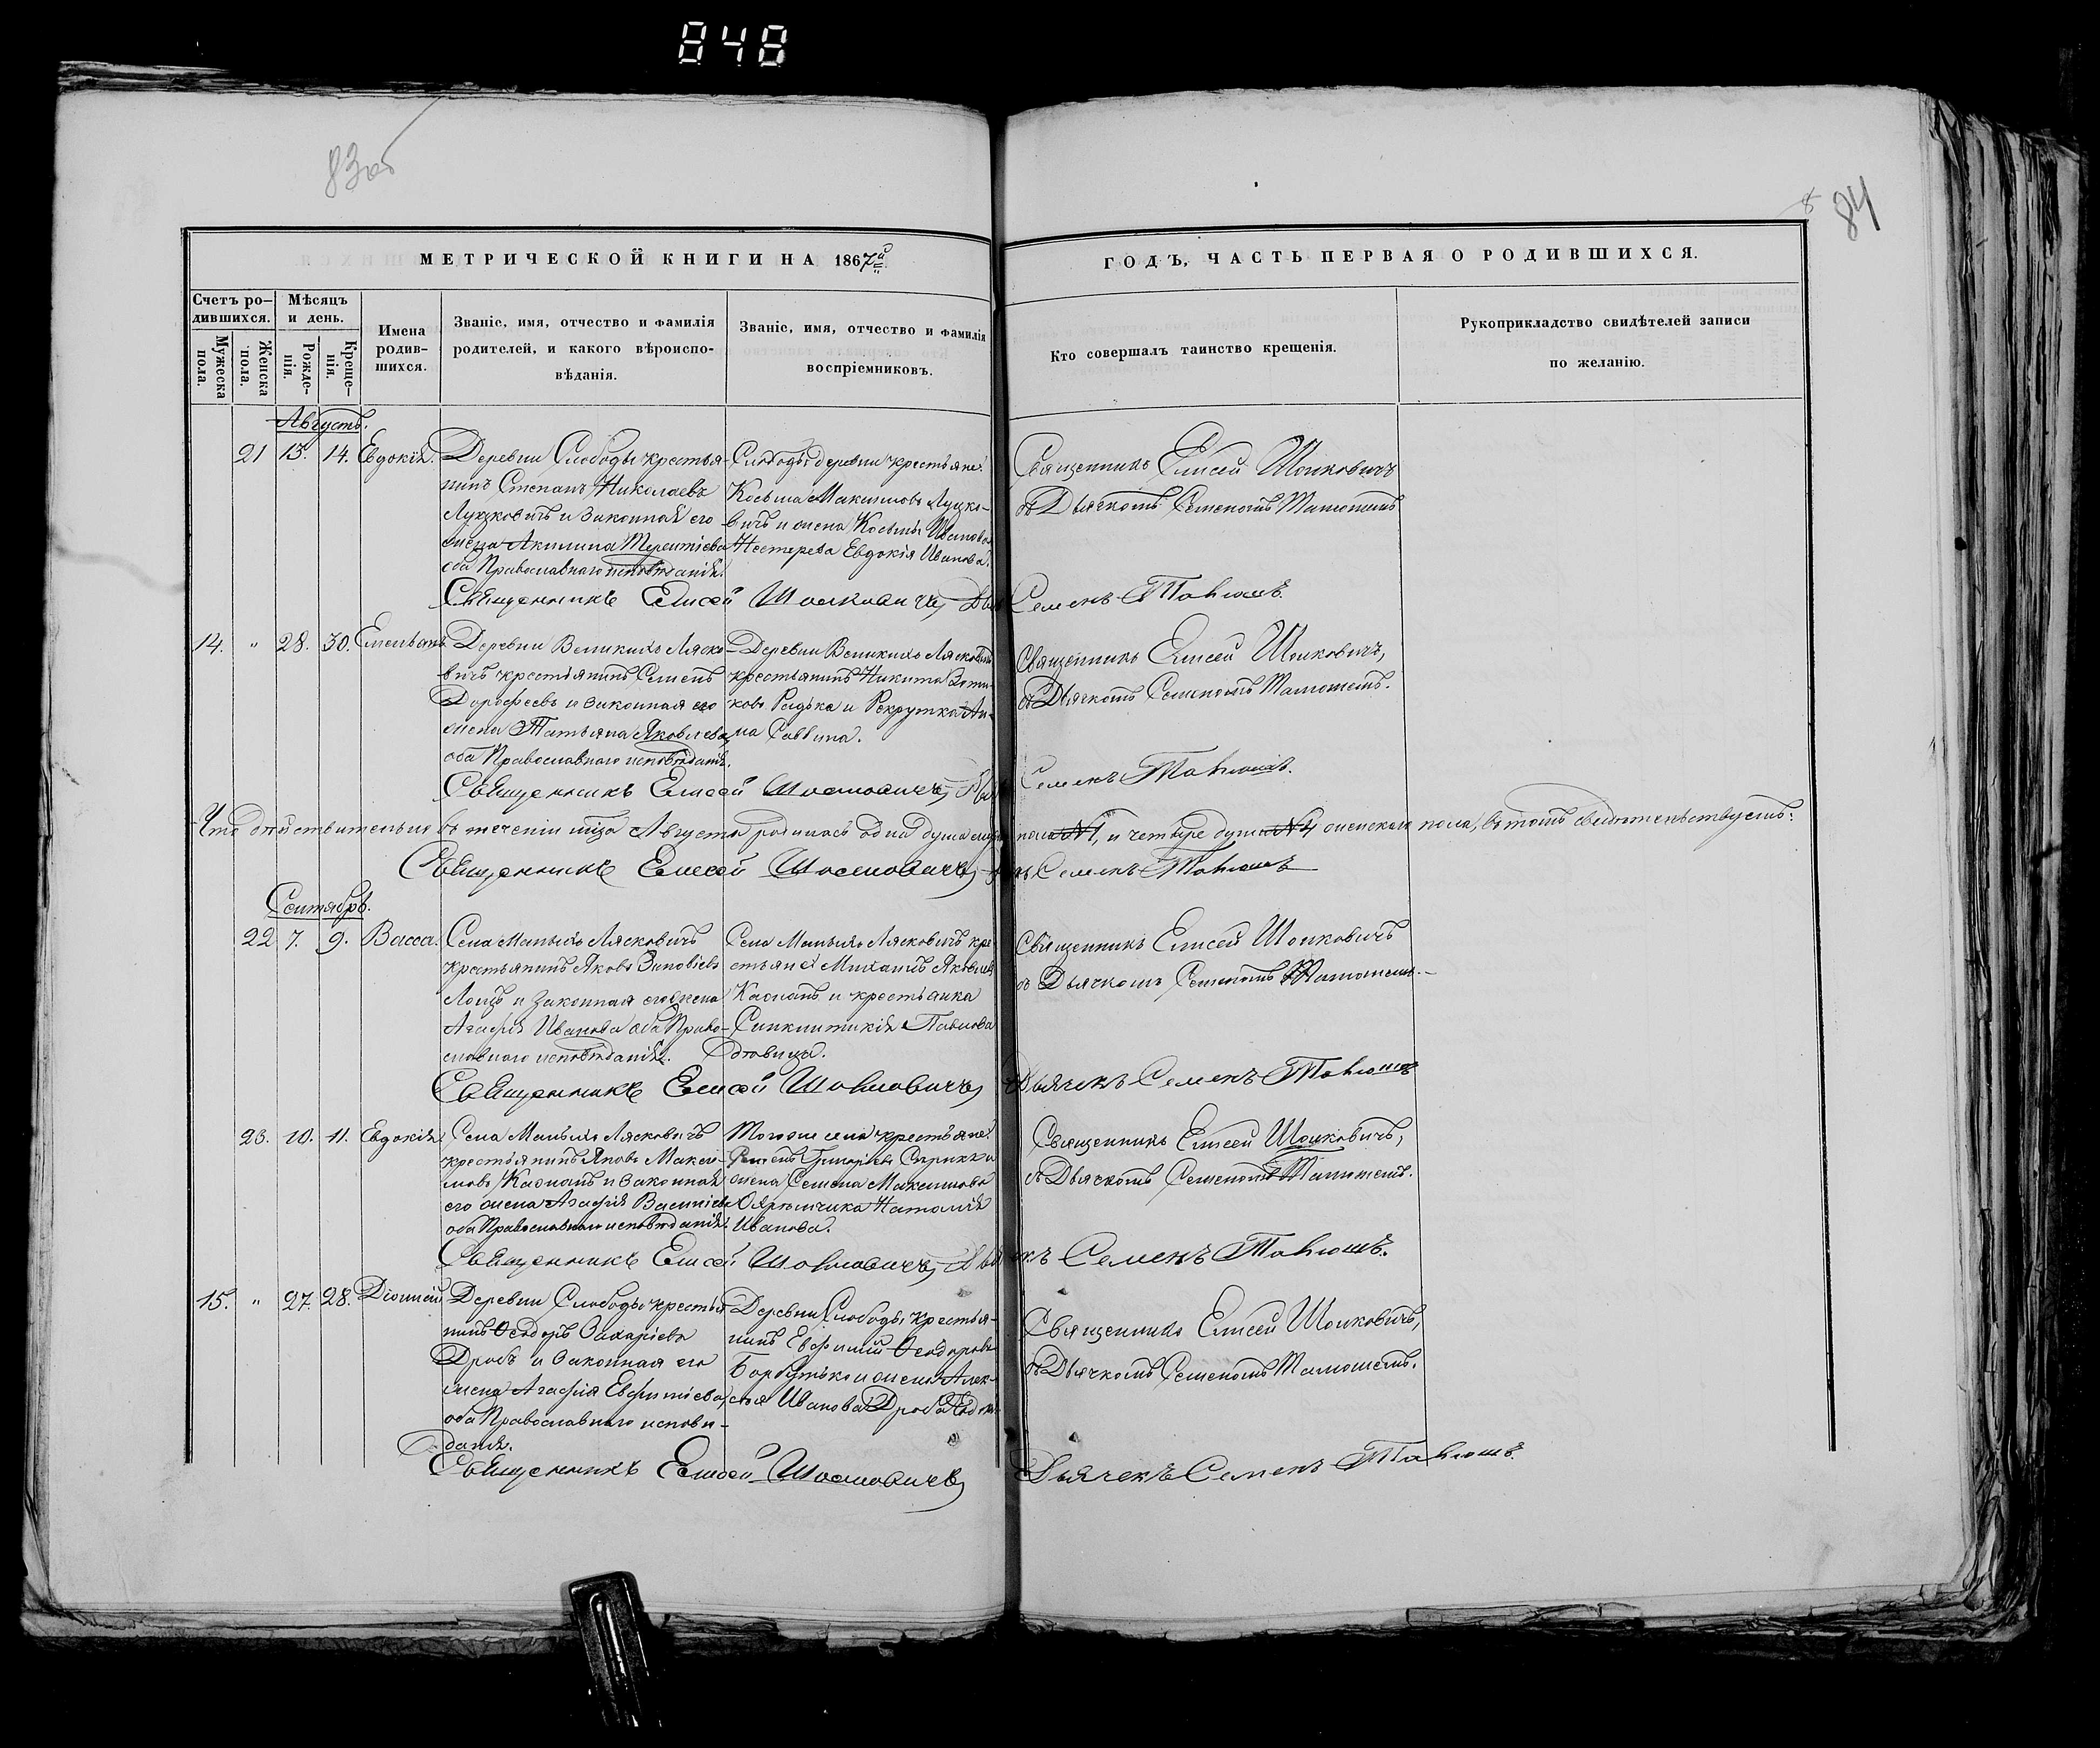 848
83об
84
МЕТРИЧЕСКОЙ КНИГИ НА 1867й
ГОДЪ, ЧАСТЬ ПЕРВАЯ О РОДИВШИХСЯ.
Счетъ ро-
дившихся.
Мужеска
пола.
Женска
пола.
Мѣсяцъ
и день.
Рожде-
нія.
Креще-
нія.
Имена
родив-
шихся.
Званіе, имя, отчество и фамилія
родителей, и какого вѣроиспо-
вѣданія.
Званіе, имя, отчество и фамилія
воспріемниковъ.
Кто совершалъ таинство крещенія.
Рукоприкладство свидѣтелей записи
по желанію.
Августъ.
21 13. 14. Евдокія.
Деревни Слободы крестья-
нинъ Степанъ Николаевъ
Луцковичъ и законная его
жена Акилина Терентіева
оба Православнаго исповѣданія.
Слободы деревни крестьяне:
Косьма Максимовъ Луцко-
вичъ и жена Косьмы Иванова
Нестерева Евдокія Иванова.
Священникъ Елисей
съ Дьячкомъ Семеномъ
Священникъ Елисей
Семенъ
14. " 28. 30. Емельянъ
Деревни Великихъ Ляско-
вичъ крестьянинъ Семенъ
Дорофеевъ и законная его
жена Татьяна Яковлева,
оба Православнаго исповѣданія.
Деревни Великихъ Лясковичъ
крестьянинъ Никита
Редька и Рекрутка Ан-
на Саввина.
Священникъ Елисей
съ Дьячкомъ Семеномъ
Священникъ Елисей
Семенъ
Что дѣйствительно въ теченіи мца Августа родилась одна душа пола №1, и четыре души №4 женскаго пола, въ томъ свидѣтельствуемъ:
Священникъ Елисей
Семенъ
Сентябрь.
22 7. 9. Васса.
Села Малыхъ Лясковичъ
крестьянинъ Яковъ Зиновіевъ
и законная его жена
Агафія Иванова оба Право-
славнаго исповѣданія.
Села Малыхъ Лясковичъ кре-
стьяне Михаилъ Яковлевъ
Касланъ и крестьянка
Синклитикія Павлова
дѣвица.
Священникъ Елисей
съ Дьячкомъ Семеномъ
Священникъ Елисей
Дьячекъ Семенъ
23. 10. 11. Евдокія
Села Малыхъ Лясковичъ
крестьянинъ Яковъ Макси-
мовъ Касланъ и законная
его жена Агафія Василіева
оба Православнаго исповѣданія.
Тогоже села крестьяне:
Семенъ Григоріевъ
жена Семена Максимова
Наталія
Иванова.
Священникъ Елисей
съ Дьячкомъ Семеномъ
Священникъ Елисей
Семенъ
15. " 27. 28. Діонисій
Деревни Слободы крестья-
нинъ Ѳеодоръ Захаріевъ
Дробъ и законная его
жена Агафія Евфиміева,
оба Православнаго исповѣ-
данія.
Деревни Слободы крестья-
нинъ Евфимій Ѳеодоровъ
Борбутько и жена Алек-
сѣя Иванова Дроба
Священникъ Елисей
съ Дьячкомъ Семеномъ
Священникъ Елисей
Дьячекъ Семенъ